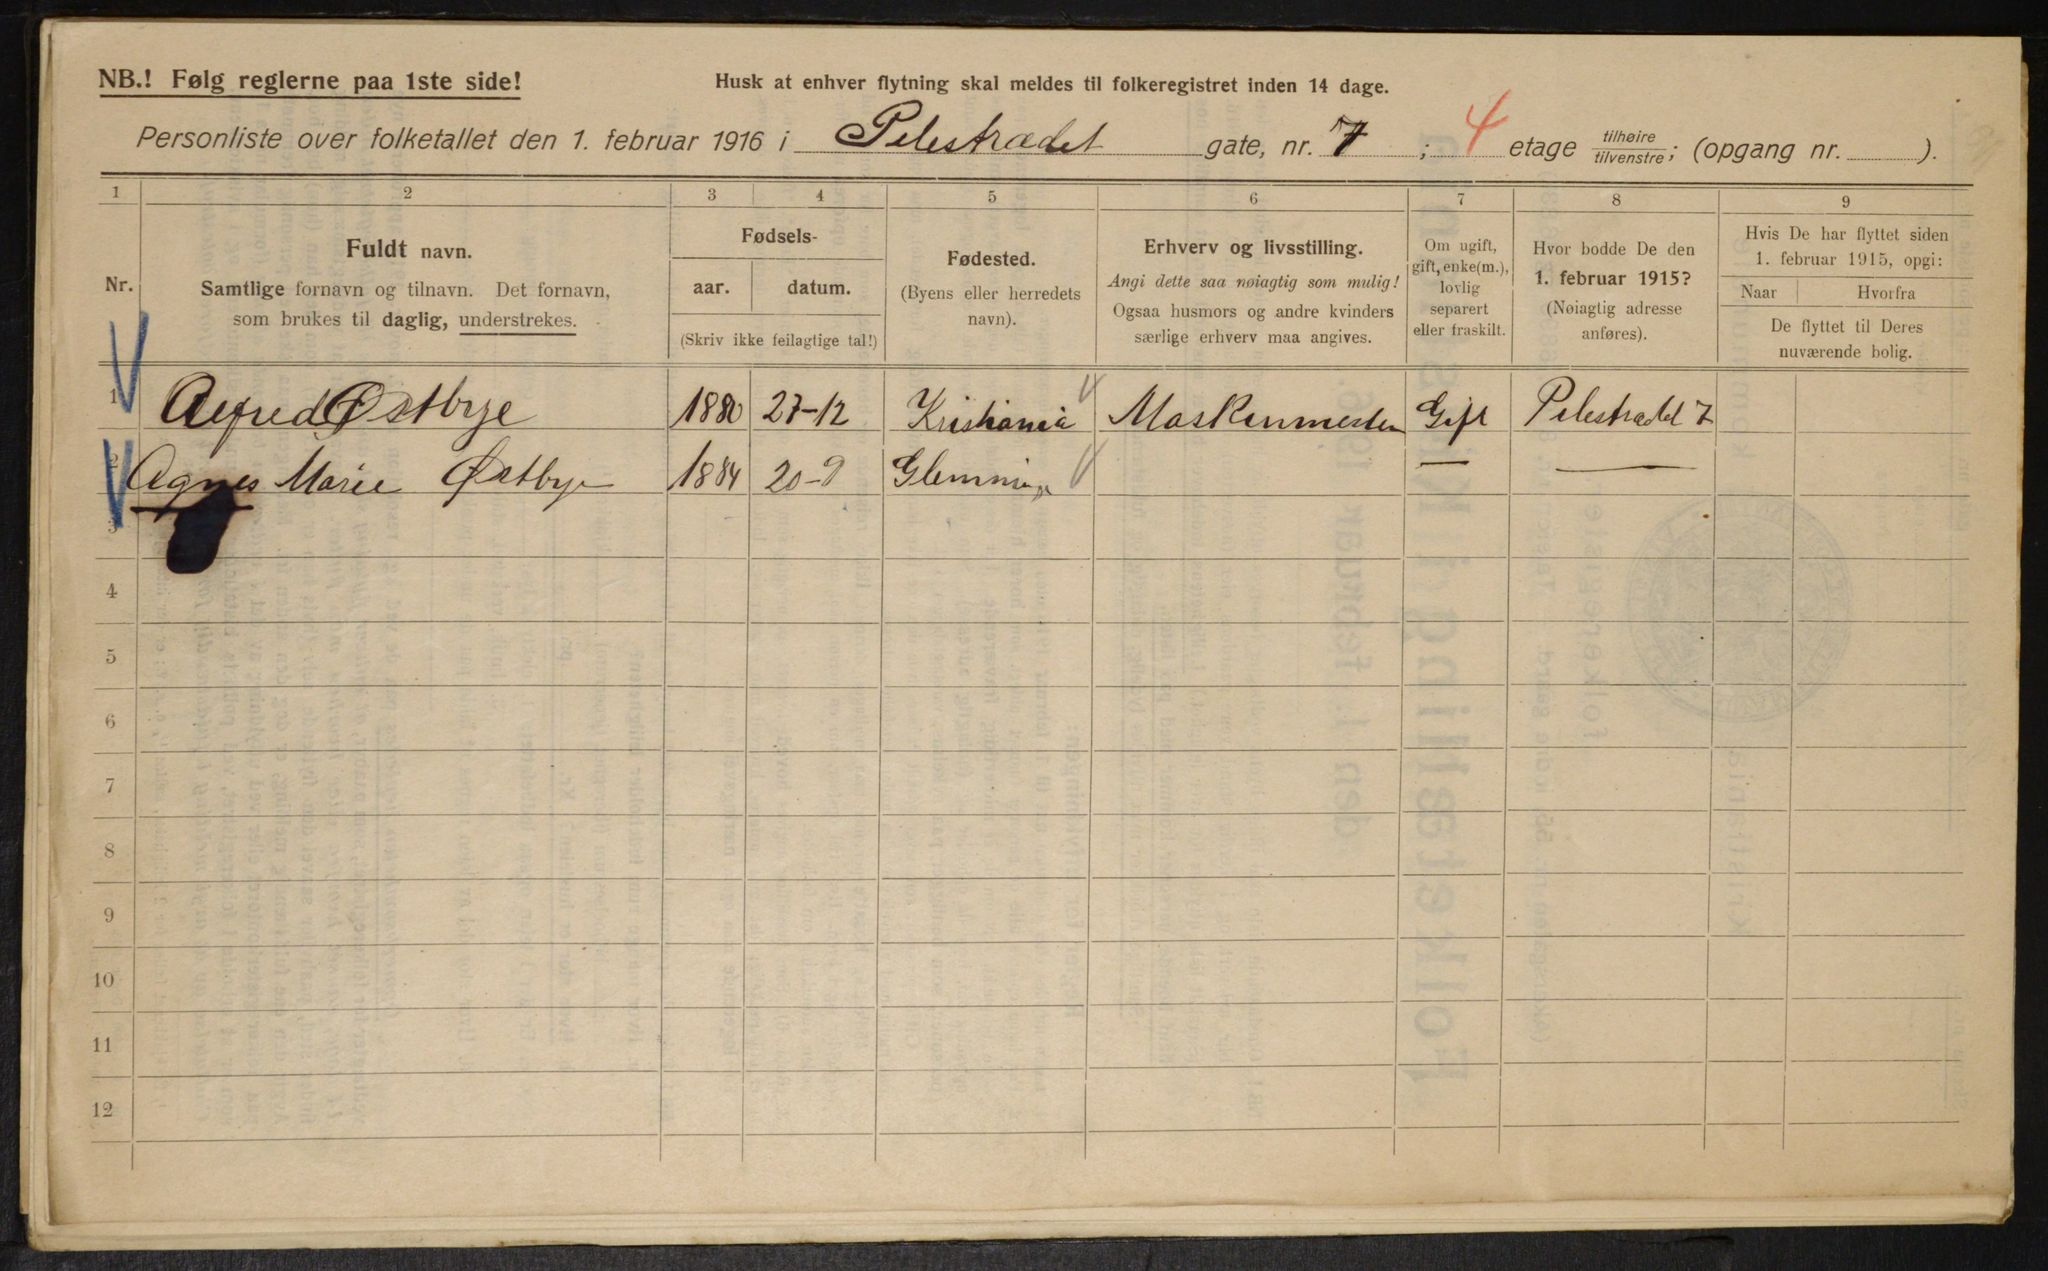 NB.! Følg reglerne paa 1ste side!
Husk at enhver flytning skal meldes til folkeregistret inden 14 dage.
Personliste over folketallet den 1. februar 1916 i Pilestrædet gate, nr. 7 ; 4 etage tilhøire/tilvenstre; (opgang nr. ).
1 2 3 4 5 6 7 8 9
Nr.
Fuldt navn.
Samtlige fornavn og tilnavn. Det fornavn,
som brukes til daglig, understrekes.
Fødsels-
aar. datum.
(Skriv ikke feilagtige tal!)
Fødested.
(Byens eller herredets
navn).
Erhverv og livsstilling.
Angi dette saa nøiagtig som mulig!
Ogsaa husmors og andre kvinders
særlige erhverv maa angives.
Om ugift,
gift, enke(m.),
lovlig
separert
eller fraskilt.
Hvor bodde De den
1. februar 1915?
(Nøiagtig adresse
anføres).
Hvis De har flyttet siden
1. februar 1915, opgi:
Naar Hvorfra
De flyttet til Deres
nuværende bolig.
1 Alfred Østbye 1880 27-12 Kristiania Maskinmester Gift Pilestrædet 7
2 Agnes Marie Østbye 1884 20-9 Glemminge — —
3
4
5
6
7
8
9
10
11
12